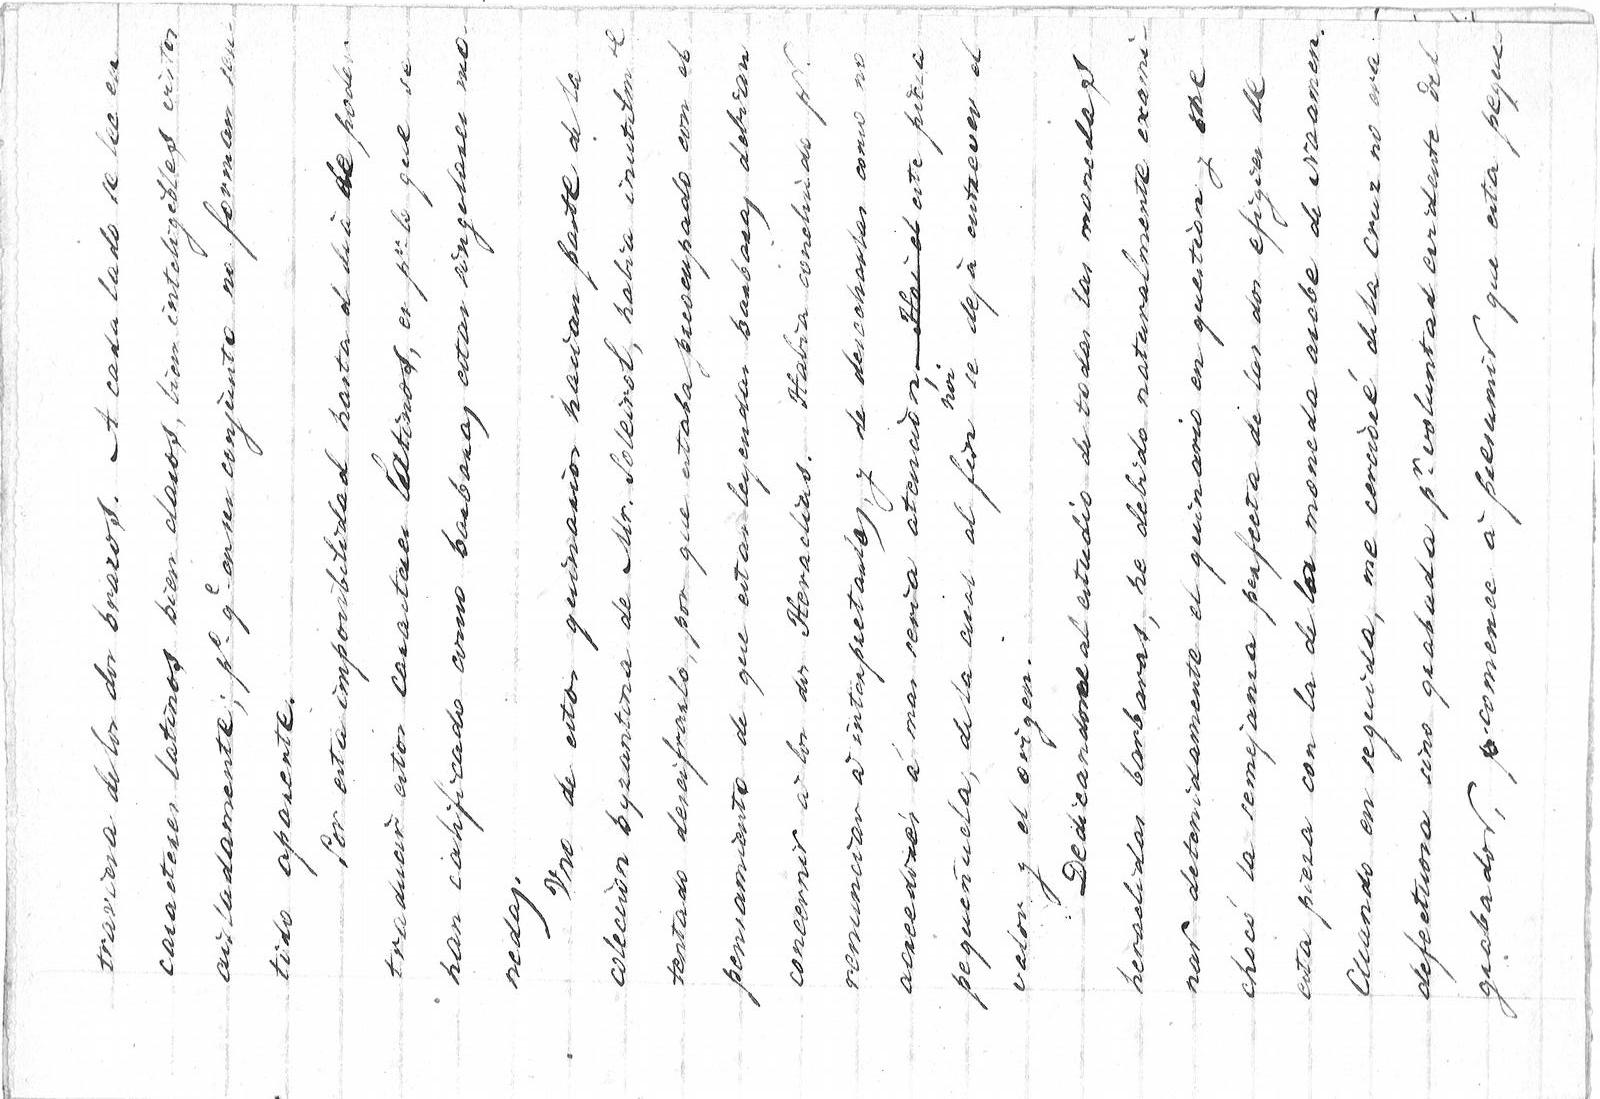 traviesa de los dos brazos. A cada lado se lee en
caracteres latinos bien claros, bien inteligibles vistos
aisladamente; p.º q.e en su conjunto no forman sen-
tido aparente.
Por esta imposibilidad hasta el dia de poder
traducir estos caracteres latinos, en p.r lo que se
han calificado como barbaras estas singulares mo-
nedas.
Uno de estos quinarios hacian parte de la
coleccion byzantina de Mr. Soleirol, habia inutilm.te
tentado descifrarlo, por que estaba preocupado con el
pensamiento de que estas leyendas barbaras debian
concernir à los dos Heraclius. Habia concluido p.r
renunciar à interpretarlas, y de desecharlas como no
acreedores á mas seria atencion esta pieza
pequeñuela, de la cual al fin hoi se deja entrever el
valor y el origen.
Dedicandome al estudio de todas las monedas
heraclidas barbaras, he debido naturalmente exami-
nar detenidamente el quinario en question y me
chocó la semejanza perfecta de las dos efigies de
esta pieza con la de la moneda arabe de
Cuando en seguida, me cercioré de la cruz no era
defectuosa sino grabada p.r voluntad evidente del
grabador, comence à presumir que esta peque